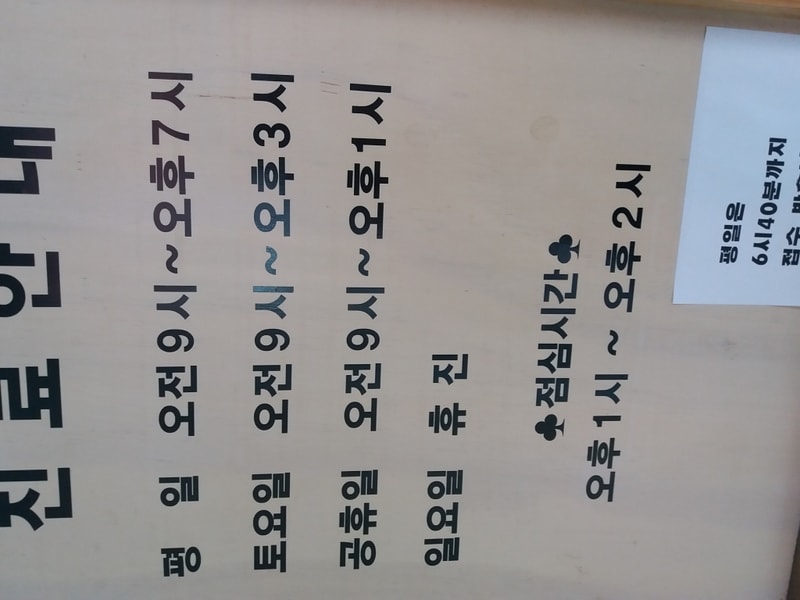 진료안내
평 일 오전 9시 ~ 오후 7시
토요일 오전 9시 ~ 오후 3시
공휴일 오전 9시 ~ 오후 1시
일요일 휴 진
♣점심시간♣
오후 1시 ~ 오후 2시
평일은
6시40분까지
접수